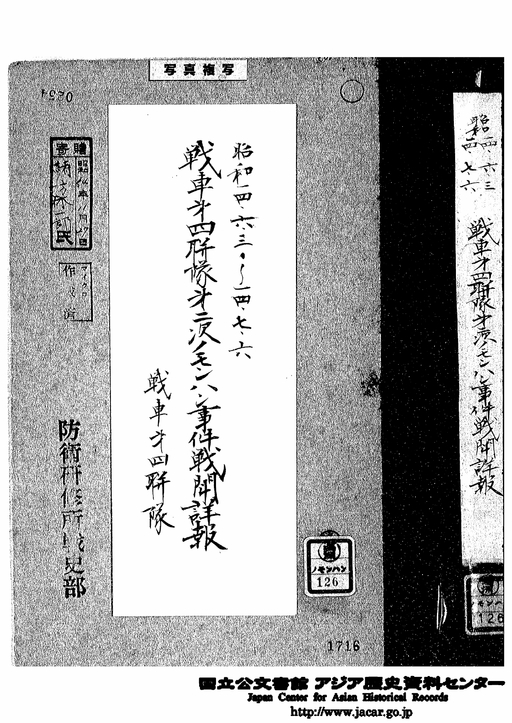 写真複写
0254
昭和一四・六・三〇～一四・七・六
戦車第四聯隊第二次ノモンハン事件戦闘詳報
戦車第四聯隊
寄贈
マイクロ
作成済
防衛研修所戦史部
ノモンハン
126
1716
昭一四・六・三
一四・七・六
戦車第四聯隊第二次ノモンハン事件戦闘詳報
ノモンハン
126
国立公文書館 アジア歴史資料センター
Japan Center for Asian Historical Records
http://www.jacar.go.jp